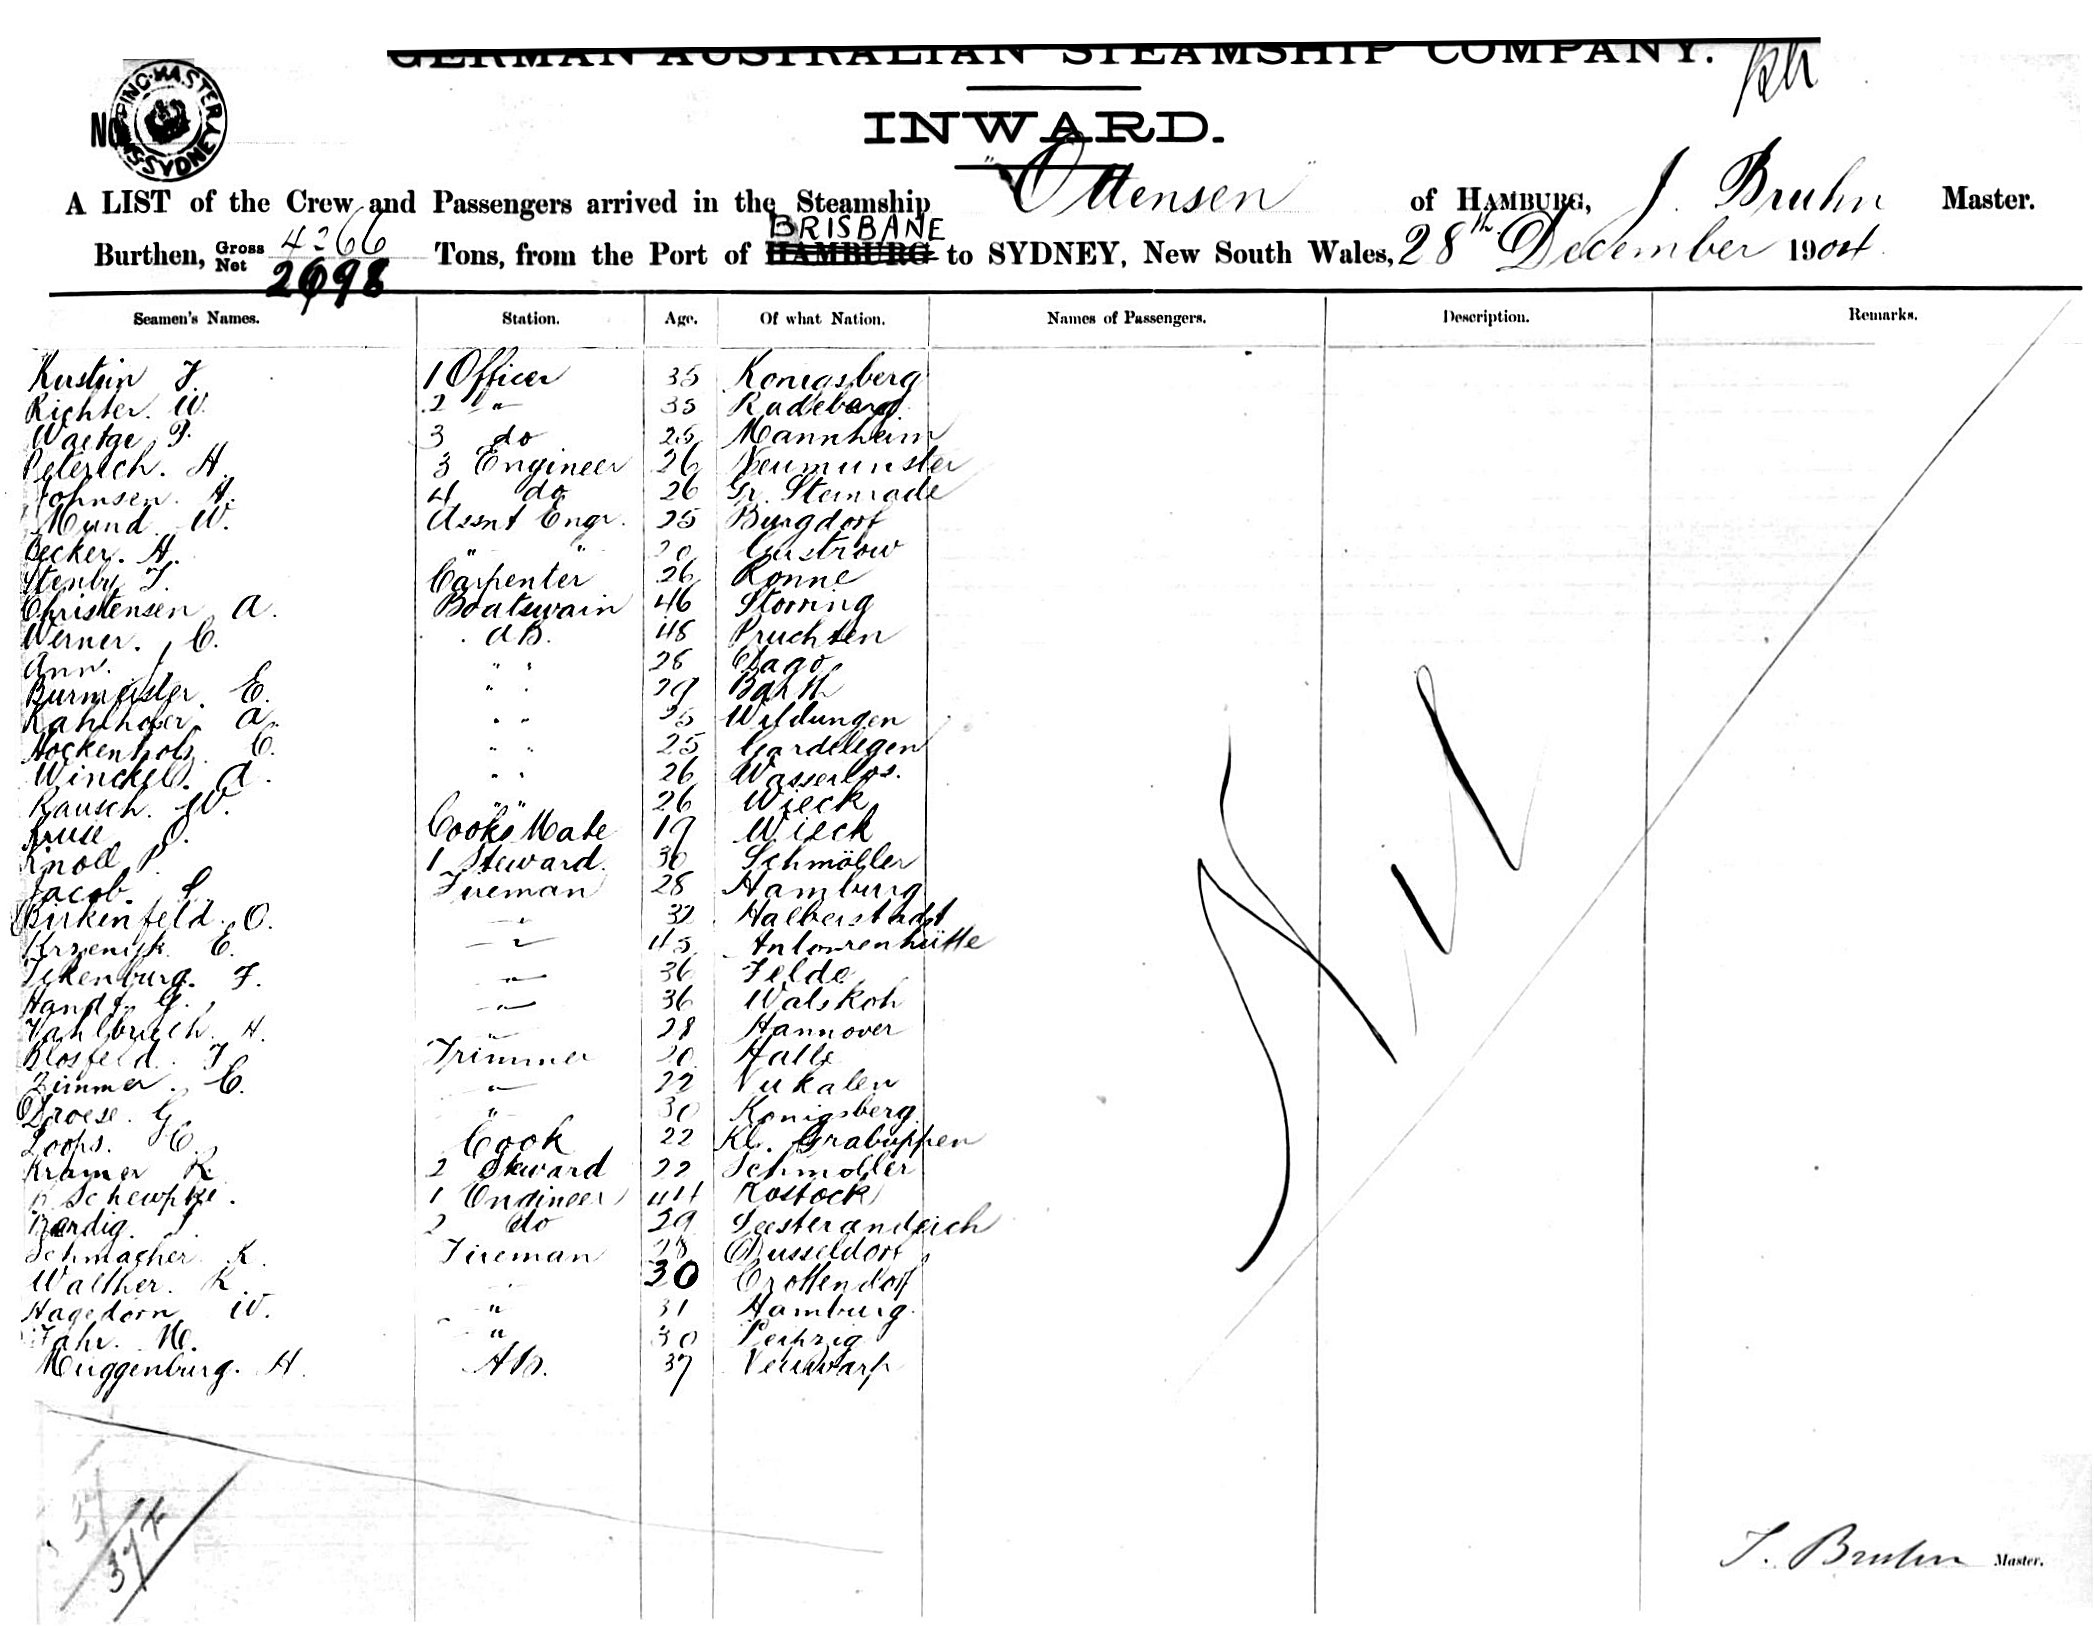 GERMAN AUSTRALIAN STEAMSHIP COMPANY.
INWARD.
No
SYDNEY
A LIST of the Crew and Passengers arrived in the Steamship "Ottensen" of HAMBURG, J. Bruhn Master.
Burthen, Gross 4266 Net 2698 Tons, from the Port of HAMBURG BRISBANE to SYDNEY, New South Wales, 28th December 1904
Seamen's Names. Station. Age. Of what Nation. Names of Passengers. Description. Remarks.
Kerstein F. 1 Officer 35 Konigsberg
Richter. W. 2 " 35 Radeberg
Waetge P. 3 do 25 Mannheim
Petersch. H. 3 Engineer 26 Neumunster
Johnsen. H. 4 do 26 Gr. Steinrade
Mund W. Assnt Engr. 25 Burgdorf
Becker. H. " " 20 Gustrow
Stenby F. Carpenter 26 Ronne
Christensen A. Boatswain 46 Storring
Werner. C. A.B. 48 Pruchten
Ann. J " " 28 Dago
Burmeister. E. " " 29 Barth
Kahlhofer. A. " " 25 Wildungen
Hockenholz. C. " " 25 Gardelegen
Winckel. A. " " 26 Wasserlos.
Rausch. W. " " 26 Wieck
Kruse O. Cooks Mate 19 Wieck
Knoll P. 1 Steward. 30 Schmöller
Jacob. L. Fireman 28 Hamburg
Birkenfeld. O. " 32 Halberstadt
E. " 45 Antonienhütte
F. " 36 Felde
Handt. G. " 36 Walskoh
Vahlbruch. H. " 28 Hannover
Blosfeld. F Trimmer 20 Halle
Zimmer. C. " 22 Nukalen
Droese. G " 30 Konigsberg
Loops. C. Cook 22 Kl. Grabuppen
Kramer R. 2 Steward 22 Schmoller
1 Engineer 44 Rostock
Bardig. J. 2 do 29 Seesterandeich
Schmacher K. Fireman 28 Dusseldorf
Walther. K " 30 Crottendorf
Hagedorn W. " 31 Hamburg.
Jahr. M. " 30 Leipzig
Muggenburg. H. AB. 37 Neuwarp
Nil
37
J. Bruhn Master.